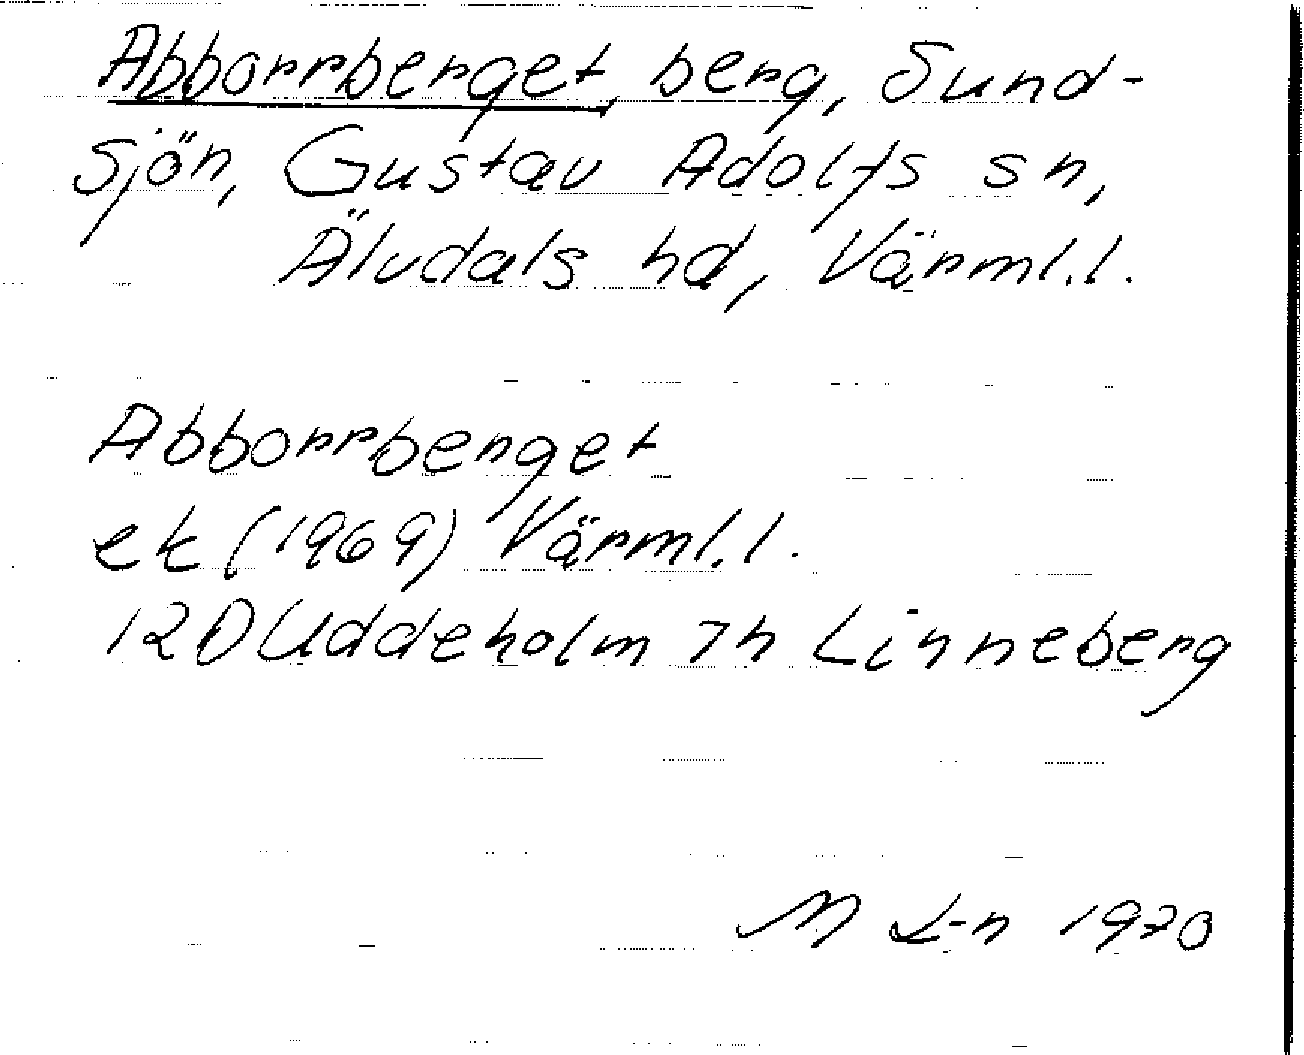 Abborrberget, berg, Sund-
sjön, Gustav Adolfs sn,
Älvdals hd, Värml.l.
Abborrberget
ek (1969) Värml.l.
12D Uddeholm 7h Linneberg
M L-n 1970